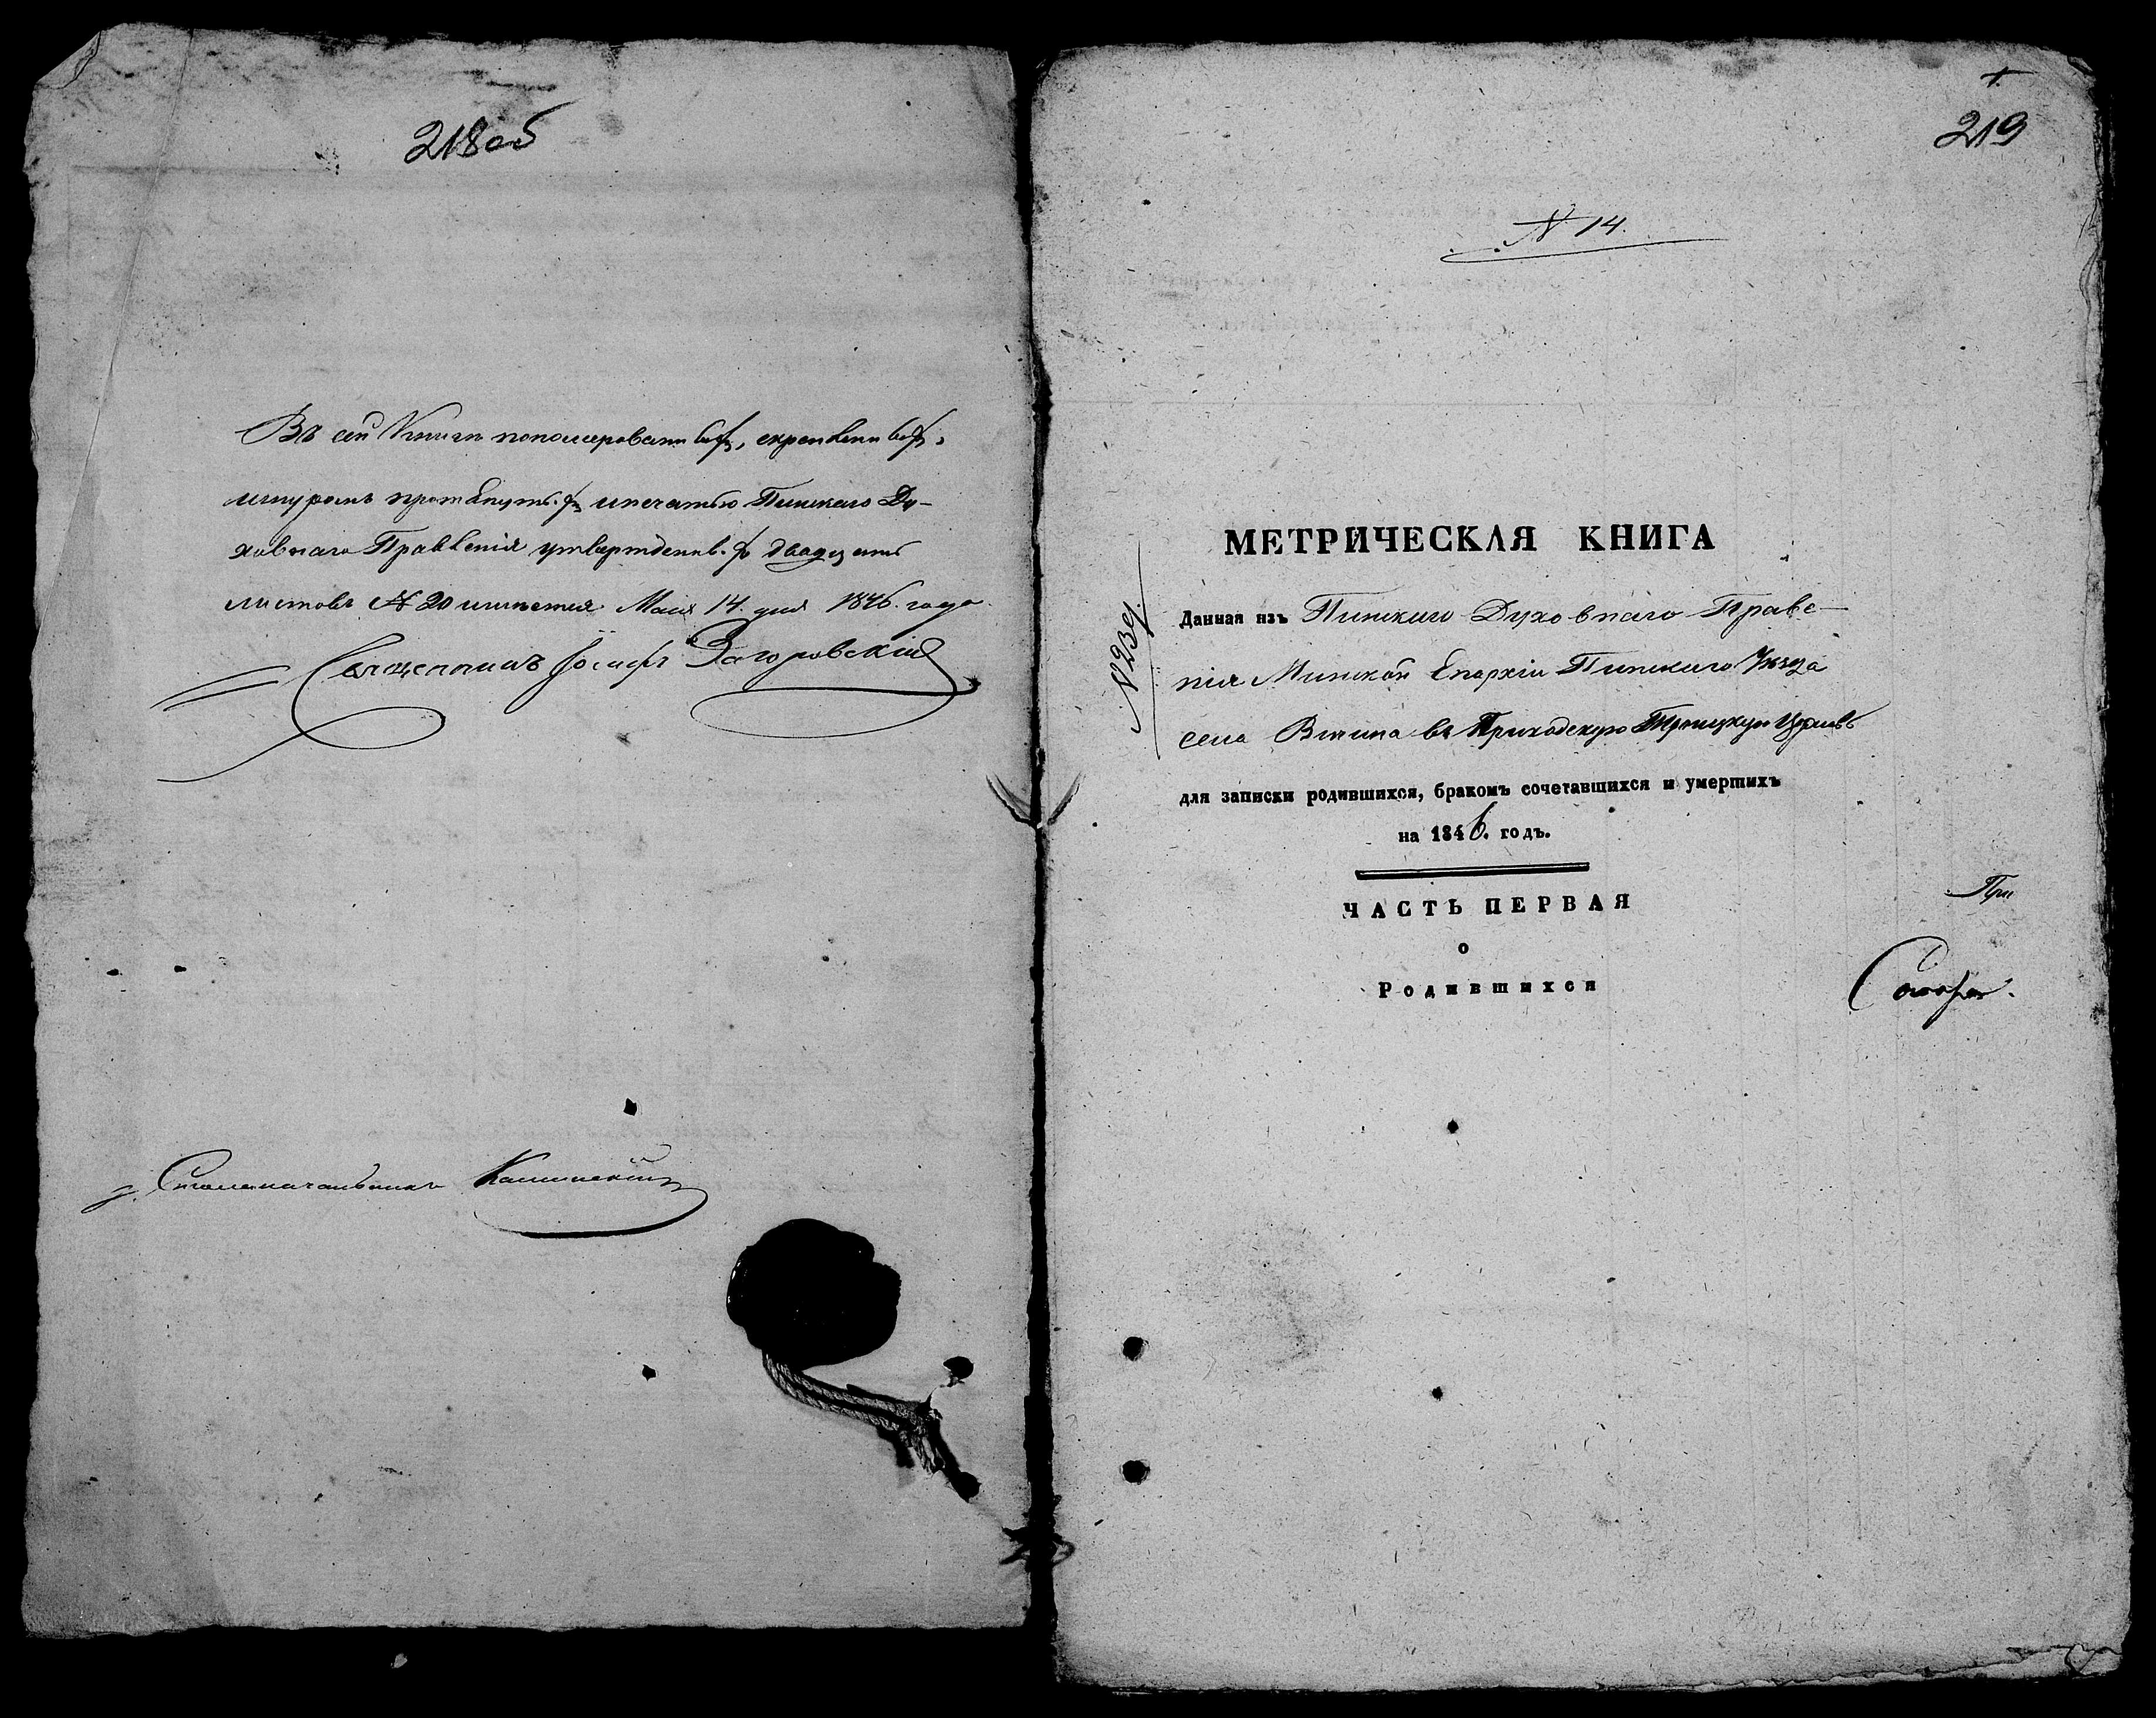 218 об
Въ сей Книги пономерованныхъ, скрепленныхъ,
шнуромъ протянутыхъ и печатью Пинскаго Ду-
ховнаго Правленія утвержденныхъ двадцать
листовъ № 20 Мая 14 дня 1846 года
Священникъ Іосифъ Загоровскій
Столоначальникъ
219
N 14.
МЕТРИЧЕСКАЯ КНИГА
Данная изъ Пинскаго Духовнаго Правле-
нія Минской Епархіи Пинскаго Уѣзда
села Вичина въ Приходскую Троицкую Церковь
для записки родившихся, бракомъ сочетавшихся и умершихъ
на 1846. годъ.
ЧАСТЬ ПЕРВАЯ
о
Родившихся
При